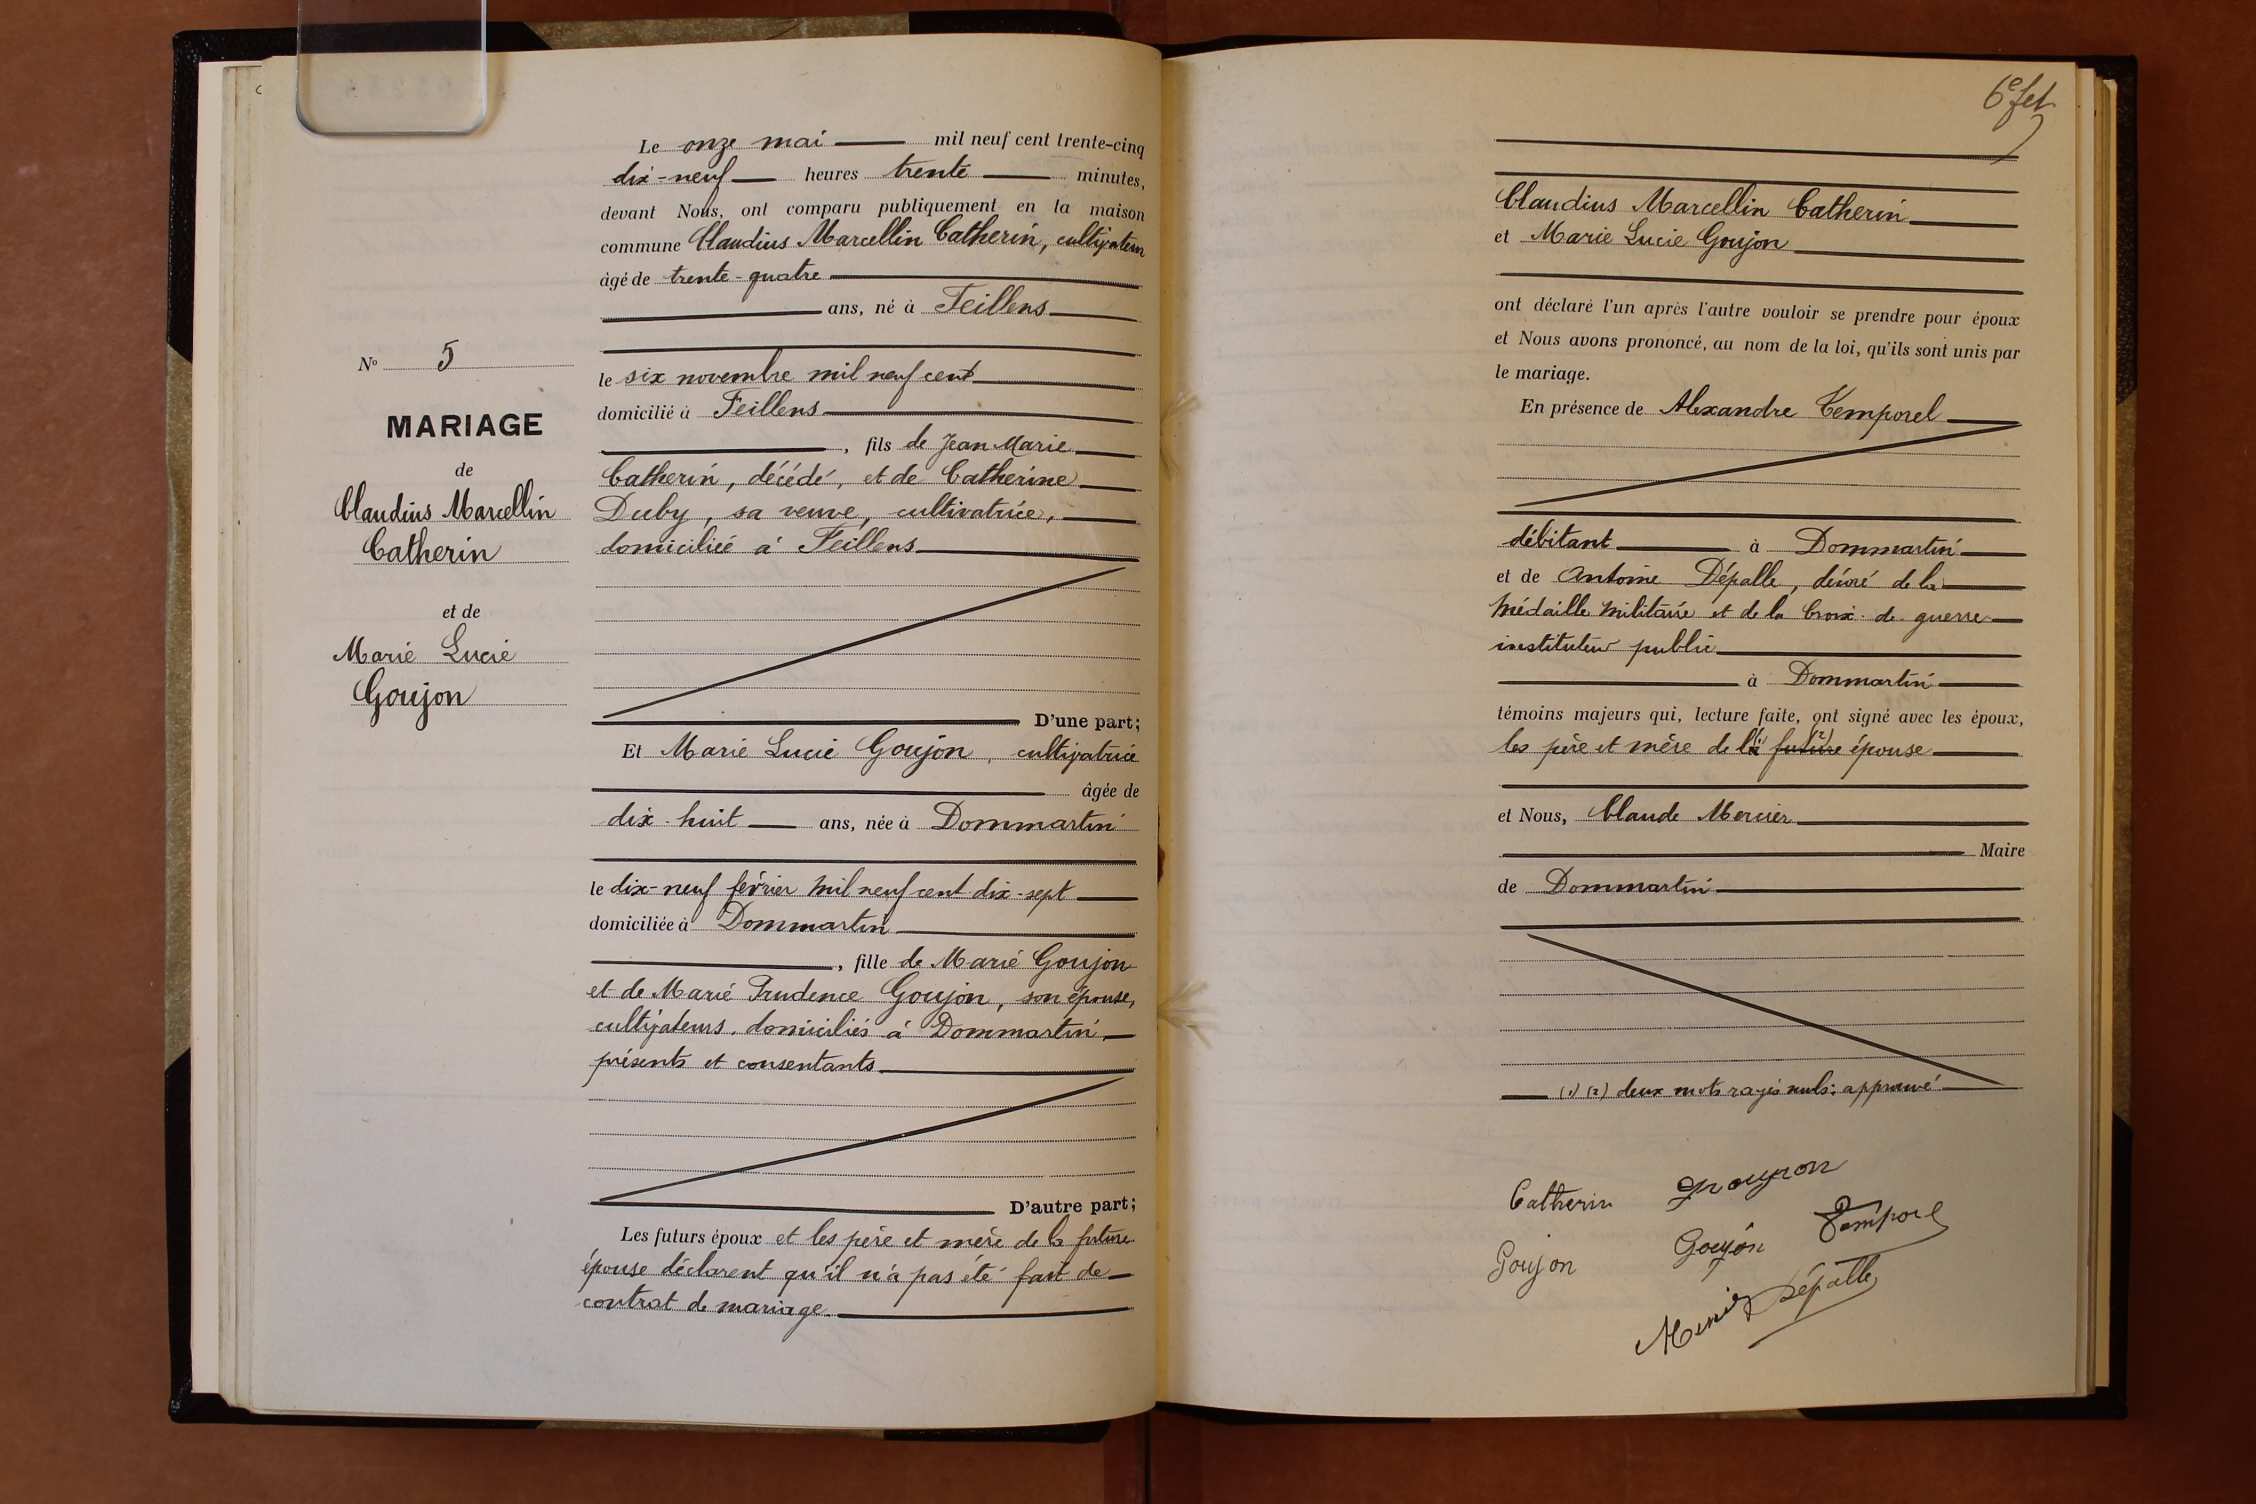 Le onze mai mil neuf cent trente-cinq
dix-neuf heures trente minutes,
devant Nous, ont comparu publiquement en la maison
commune Claudius Marcellin Catherin, cultivateur
âgé de trente-quatre
ans, né à Feillens
le six novembre mil neuf cent
domicilié à Feillens
, fils de Jean Marie
Catherin, décédé, et de Catherine
Duby, sa veuve, cultivatrice,
domiciliée à Feillens
No 5
MARIAGE
de
Claudius Marcellin
Catherin
et de
Marie Lucie
Goujon
D'une part;
Et Marie Lucie Goujon, cultivatrice
âgée de
dix-huit ans, née à Dommartin
le dix-neuf février mil neuf cent dix-sept
domiciliée à Dommartin
, fille de Marie Goujon
et de Marie Prudence Goujon, son épouse,
cultivateurs, domiciliés à Dommartin,
présents et consentants
D'autre part;
Les futurs époux et les père et mère de la future
épouse déclarent qu'il n'a pas été fait de
contrat de mariage.
Claudius Marcellin Catherin
et Marie Lucie Goujon
ont déclaré l'un après l'autre vouloir se prendre pour époux
et Nous avons prononcé, au nom de la loi, qu'ils sont unis par
le mariage.
En présence de Alexandre Temporel
débitant à Dommartin
et de Antoine Dépalle, décoré de la
Médaille Militaire et de la Croix de guerre
instituteur public
à Dommartin
témoins majeurs qui, lecture faite, ont signé avec les époux,
les père et mère de la (1) future (2) épouse
et Nous, Claude Mercier
Maire
de Dommartin
(1) (2) deux mots rayés nuls: approuvé
Catherin Goujon
Goujon Goujon Temporel
Mercier Dépalle